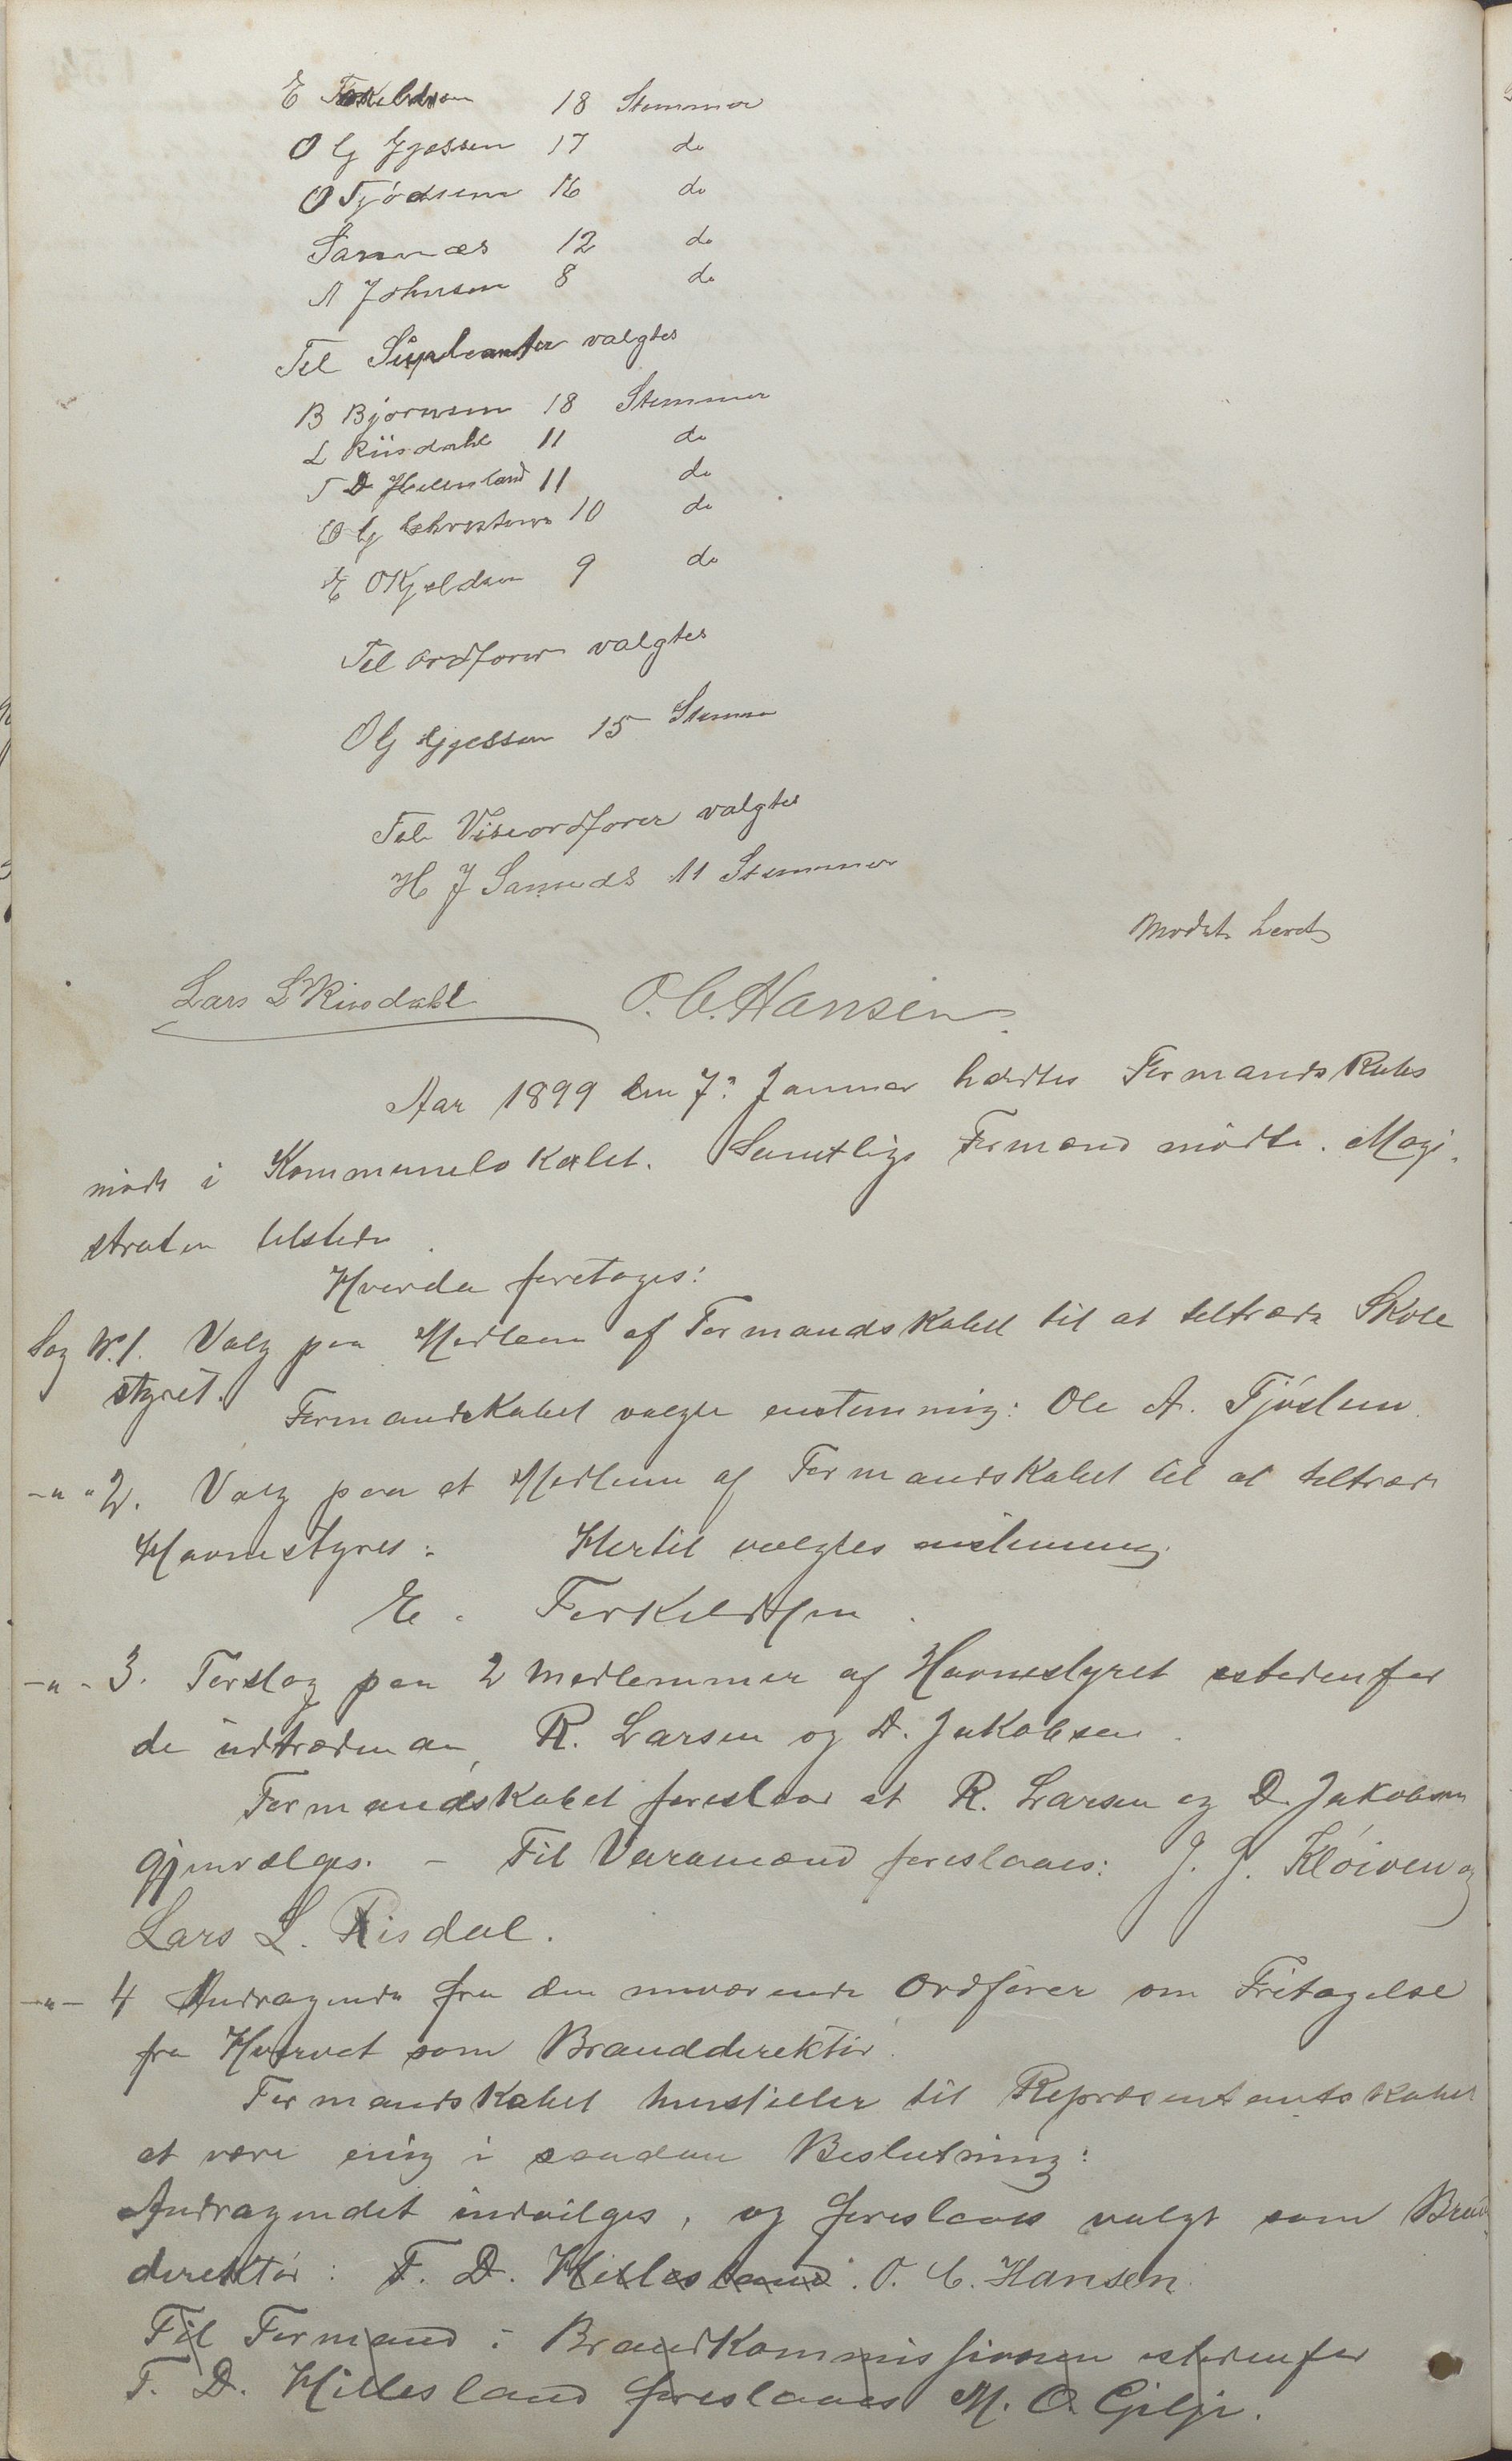 E Torkeldsen 18 Stemmer
O G Gjessen 17 do
O Tjödsem 16 do
Samnæs 12 do
A Johnsen 8 do
Til Supleanter valgtes
B Bjornsen 18 Stemmer
L Riisdahl 11 do
T D Hillesland 11 do
O G Christensen 10 do
E O Kjeldsen 9 do
Til ordforer valgtes
O G Gjessen 15 Stemmer
Til Viseordforer valgtes
H J Samnæs 11 Stemmer
Modet hevet
Lars L Risdahl O. C. Hansen.
Aar 1899 den 7. Januar holdtes Formandskabs
möde i Kommunelokalet. Samtlige Formænd mödte. Magi-
straten tilstede.
Hvorda foretoges:
Sag N. 1. Valg paa Medlem af Formandskabet til at tiltræde Skole
styret.
Formandskabet valgte enstemmig: Ole A. Tjöslem.
-"- 2. Valg paa et Medlem af Formandskabet til at tiltræde
Havnestyret: Hertil valgtes enstemmig
E. Torkildsen.
-"- 3. Forslag paa 2 Medlemmer af Havnestyret istedenfor
de udtrædende, R. Larsen og D. Jakobsen.
Formandskabet foreslaar at R. Larsen og D. Jakobsen
gjenvælges. - Til Varamænd foreslaaes: J. J. Klöiven og
Lars L. Risdal.
-"- 4 Andragende fra den nuværende Ordförer om Fritagelse
fra Hvervet som Branddirektör.
Formandskabet henstiller til Repræsentantskabet
at være enig i saadan Beslutning:
Andragendet indvilges, og foreslaaes valgt som Brand
direktör: T. D. Hillesland. O. C. Hansen.
Til Formand i Brandkommissionen istedenfor
T. D. Hillesland foreslaaes M. O. Gilje.